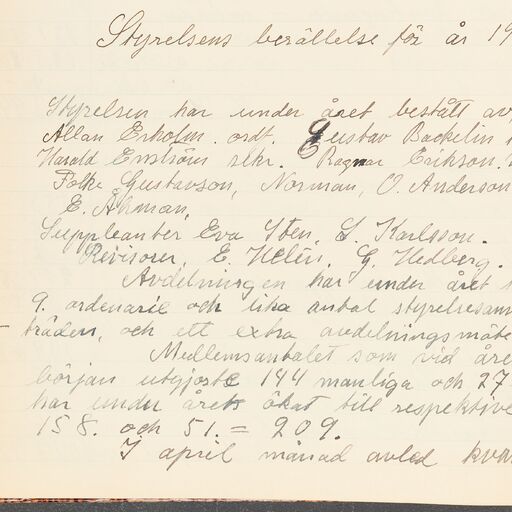 Styrelsens berättelse för år 19
Styrelsen har under året bestått av
Allan Erholm. ordf. Gustav Backelin
Harald Enström sekr. Ragnar Erikson.
Folke Gustavson, Norman, O. Anderson
E. Åhman,
Suppleanter Eva Sten, S. Karlsson.
Revisorer, E. Helén, G. Hedberg.
Avdelningen har under året
9. ordenarie och lika antal styrelsesam
träden, och ett extra avdelningsmöte
Medlemsantalet som vid åre
början utgjorde 144 manliga och 27
har under året ökat till respektive
158. och 51. = 209.
I april månad avled kva